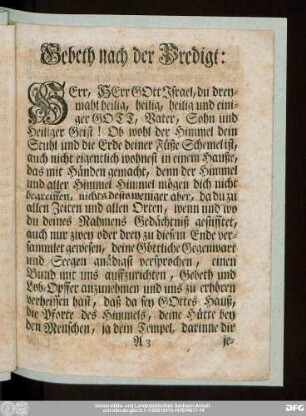 Gebeth nach der Predigt:
HErr, HErr GOtt Israel, du drey-
mahl heilig, heilig, heilig und eini-
ger GOTT, Vater, Sohn und
Heiliger Geist! Ob wohl der Himmel dein
Stuhl und die Erde deiner Füsse Schemel ist,
auch nicht eigentlich wohnest in einem Hausse,
das mit Händen gemacht, denn der Himmel
und aller Himmel Himmel mögen dich nicht
begreiffen, nichts destoweniger aber, da du zu
allen Zeiten und allen Orten, wenn und wo
du deines Nahmens Gedächtniß gestifftet,
auch nur zwey oder drey zu diesem Ende ver-
sammlet gewesen, deine Göttliche Gegenwart
und Seegen gnädigst versprochen, einen
Bund mit uns auffzurichten, Gebeth und
Lob-Opffer anzunehmen und uns zu erhören
verheissen hast, daß da sey GOttes Hauß,
die Pforte des Himmels, deine Hütte bey
den Menschen, ja dein Tempel, darinne dir
A 3 je-
Universitäts- und Landesbibliothek Sachsen-Anhalt
DFG